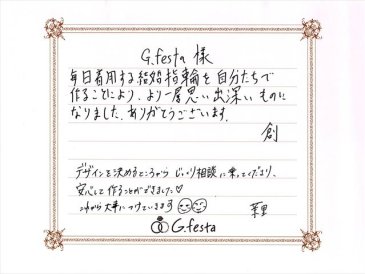 G.festa 様
毎日着用する結婚指輪を自分たちで
作ることにより、より一層思い出深いものに
なりました。ありがとうございます。
創
デザインを決めるところから じっくり相談に乗ってくださり、
安心して作ることができました♡
これから大事につけていきます
菜里
G.festa